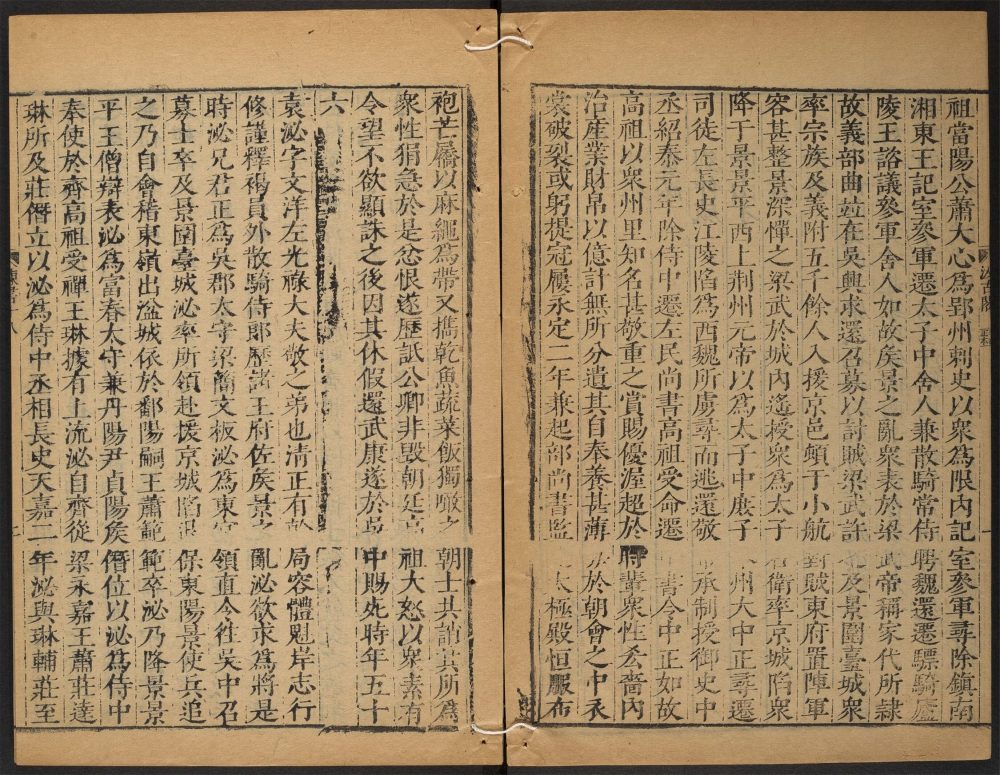 祖當陽公蕭大心為郢州刺史以衆為限內記室參軍尋除鎮南
湘東王記室參軍遷太子中舍人兼散騎常侍聘魏還遷驃騎廬
陵王諮議參軍舍人如故矦景之亂衆表於梁武帝稱家代所隷
故義部曲竝在吳興求還召募以討賊梁武許之及景圍臺城衆
率宗族及義附五千餘人入援京邑頓于小航對賊東府置陣軍
容甚整景深憚之梁武於城內遙授衆為太子右衛率京城陷衆
降于景景平西上荆州元帝以為太子中庶子本州大中正尋遷
司徒左長史江陵陷為西魏所虜尋而逃還敬帝承制授御史中
丞紹泰元年除侍中遷左民尚書高祖受命遷中書令中正如故
高祖以衆州里知名甚敬重之賞賜優渥超於時輩衆性吝嗇內
治産業財帛以億計無所分遺其自奉養甚薄每於朝會之中衣
裳破裂或躬提冠屨永定二年兼起部尚書監起太極殿恒服布
袍芒屩以麻繩為帶又擕乾魚蔬菜飯獨噉之朝士共誚其所為
衆性狷急於是忿恨遂歷詆公卿非毀朝廷高祖大怒以衆素有
令望不欲顯誅之後因其休假還武康遂於吳中賜死時年五十
六
袁泌字文洋左光祿大夫敬之弟也清正有幹局容體魁岸志行
修謹釋褐員外散騎侍郎歷諸王府佐矦景之亂泌欲求為將是
時泌兄君正為吳郡太守梁簡文板泌為東宮領直令往吳中召
募士卒及景圍臺城泌率所領赴援京城陷退保東陽景使兵追
之乃自會稽東嶺出湓城依於鄱陽嗣王蕭範範卒泌乃降景景
平王僧辯表泌為富春太守兼丹陽尹貞陽矦僭位以泌為侍中
奉使於齊高祖受禪王琳據有上流泌自齊從梁永嘉王蕭莊達
琳所及莊僭立以泌為侍中丞相長史天嘉二年泌與琳輔莊至